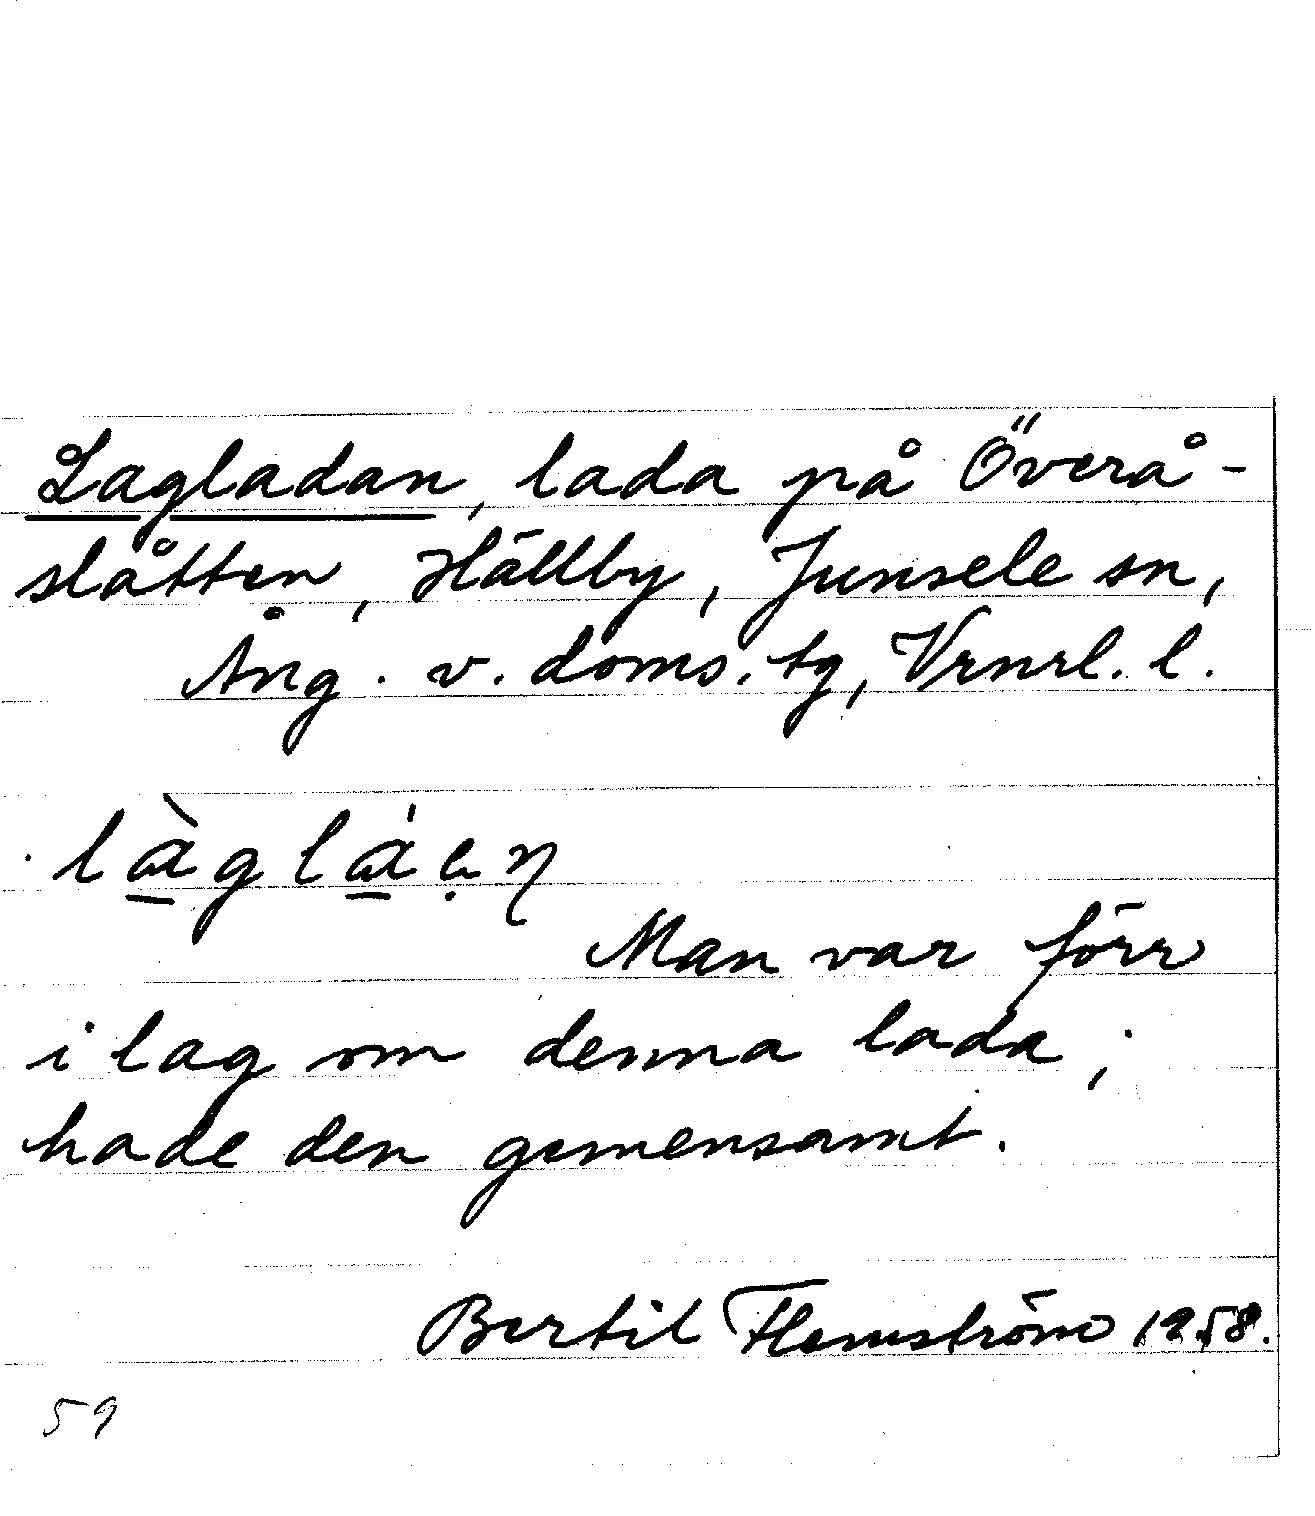 Lagladan, lada på Överå-
slåtten, Hällby, Junsele sn,
Ång. v. doms. tg, Vrnrl. l.
làglȧẹn
Man var förr
i lag om denna lada;
hade den gemensamt.
Bertil Flemström 1958.
59